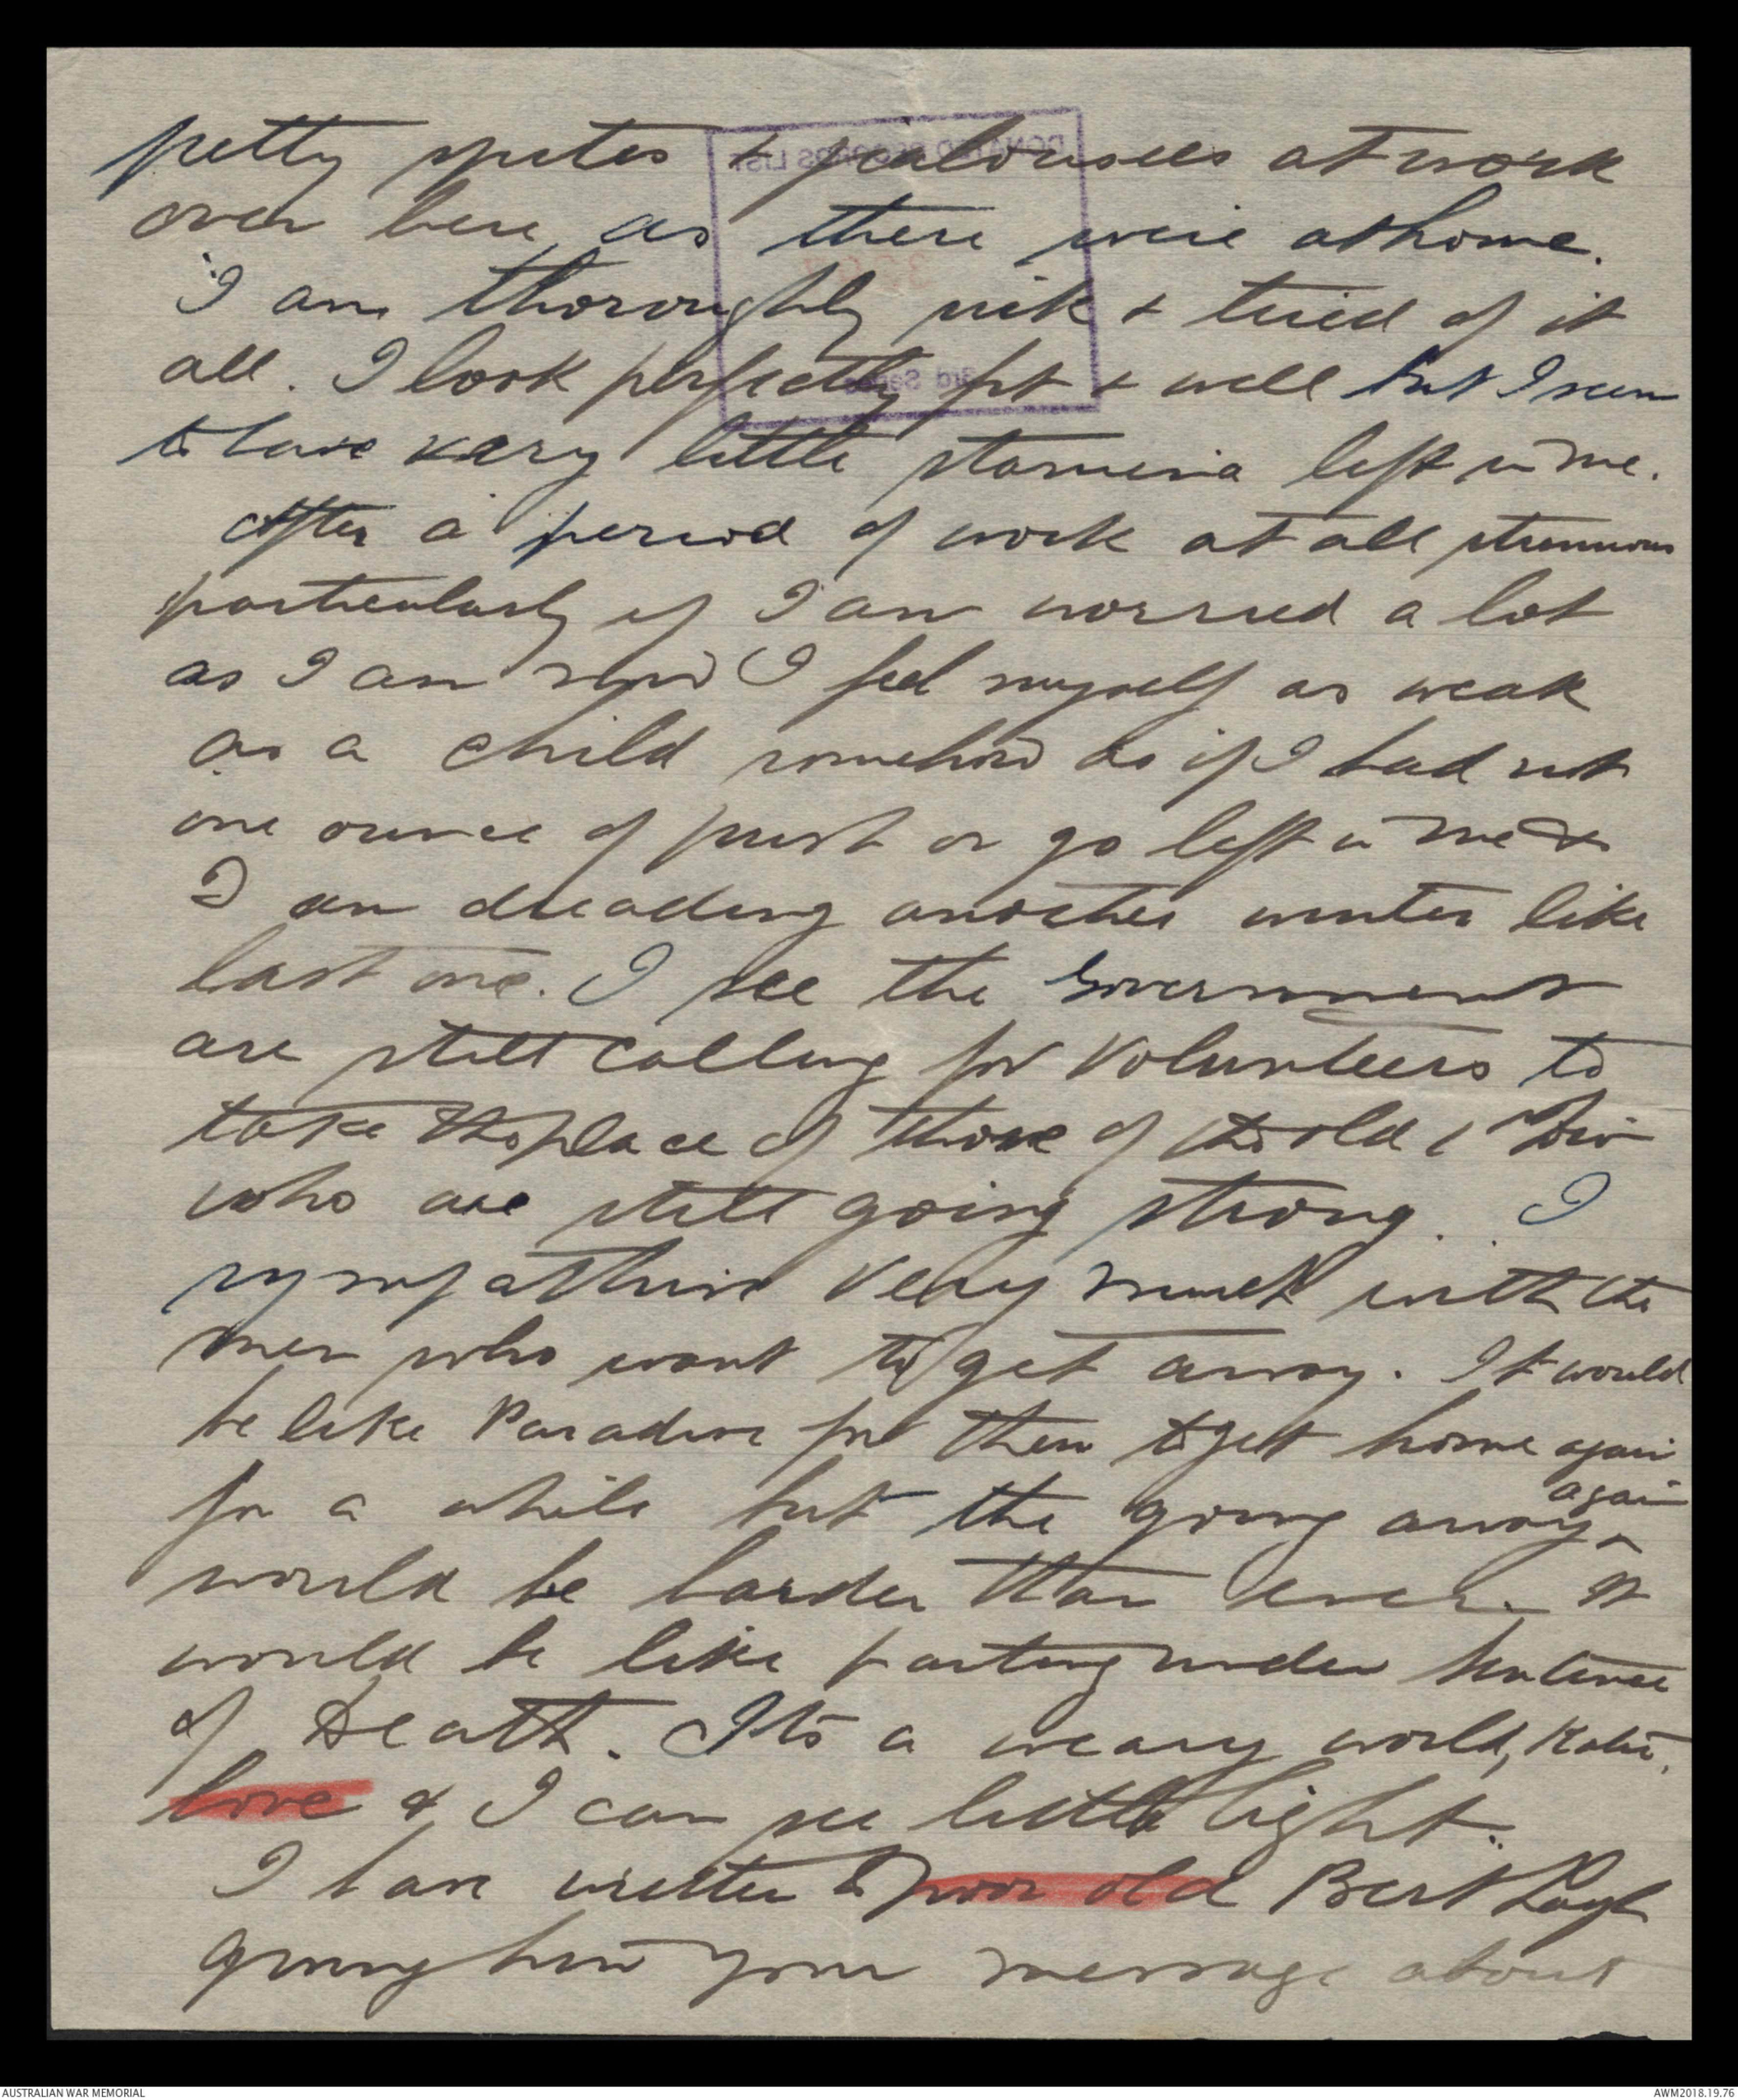 petty spites & jealousies at work
over here, as there were at home.
I am thoroughly sick & tired of it
all. I look perfectly fit & well but I seem
to have very little stamina left in me.
After a period of work at all strenuous
particularly if I am worried a lot
as I am now I feel myself as weak
as a child somehow as if I had not
one ounce of push or go left in me &
I am dreading another winter like
last one. I see the Government
are still calling for volunteers to
take the place of those of the old 1st Div
who are still going strong. I
sympathise very much with the
men who want to get away. It would
be like Paradise for them to get home again
for a while but the going away again
would be harder than ever. It
would be like parting under sentence
of Death. Its a weary world, Katie,
love & I can see little light.
I have written to poor old Bert
giving him your message about
DONATED RECORDS LIST
3rd Series
AUSTRALIAN WAR MEMORIAL
AWM2018.19.76